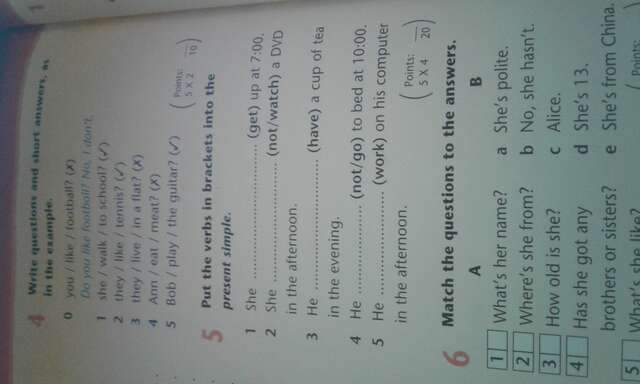 4 Write questions and short answers, as
in the example.
0 you / like / football? (✗)
Do you like football? No, I don't.
1 she / walk / to school? (✓)
2 they / like / tennis? (✓)
3 they / live / in a flat? (✗)
4 Ann / eat / meat? (✗)
5 Bob / play / the guitar? (✓)
Points:
5 X 2 10
5 Put the verbs in brackets into the
present simple.
1 She .............................. (get) up at 7:00.
2 She .......................... (not/watch) a DVD
in the afternoon.
3 He ............................. (have) a cup of tea
in the evening.
4 He ................... (not/go) to bed at 10:00.
5 He ....................... (work) on his computer
in the afternoon.
Points:
5 X 4 20
6 Match the questions to the answers.
A B
1 What's her name? a She's polite.
2 Where's she from? b No, she hasn't.
3 How old is she? c Alice.
4 Has she got any d She's 13.
brothers or sisters? e She's from China.
5 What's she like? Points:
1